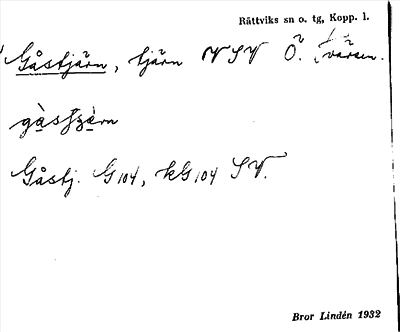 Rättviks sn o. tg, Kopp. l.
Gåstjärn, tjärn NSV Ö.
gàstjæ̀rn
Gåstj. G104, kG104 SV.
Bror Lindén 1932